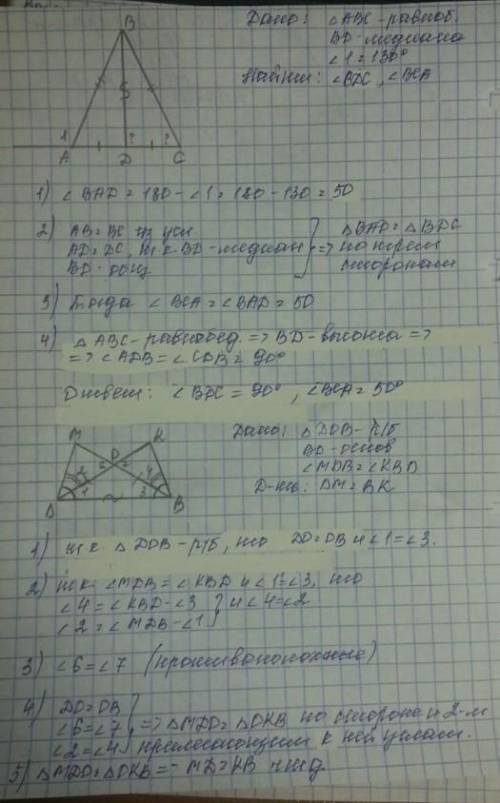 Дано: △ABC-равноб.
BD-медиана
∠1=130°
Найти: ∠BDC, ∠BCA
B
1 ? ?
A D C
1) ∠BAD = 180-∠1 = 180-130 = 50
2) AB=BC из усл
AD=DC, т.к. BD-медиан
BD-общ
=> △BAD=△BDC
по трем
сторонам
3) Тогда ∠BCA=∠BAD=50
4) △ABC-равнобед. => BD-высота =>
=> ∠ADB=∠CDB=90°
Ответ: ∠BDC=90°, ∠BCA=50°
M K
O
6 7
2 4
1 3
D B
Дано: △DOB-р/б
BD-основ
∠MDB=∠KBD
Д-ть: DM=BK
1) т.к. △DOB-р/б, то DO=OB и ∠1=∠3.
2) т.к. ∠MDB=∠KBD и ∠1=∠3, то
∠4=∠KBD-∠3 } и ∠4=∠2
∠2=∠MDB-∠1
3) ∠6=∠7 (противоположные)
4) DO=OB
∠6=∠7 => △MDO=△OKB по стороне и 2-м
∠2=∠4 прилегающим к ней углам.
5) △MDO=△OKB => MD=KB чтд